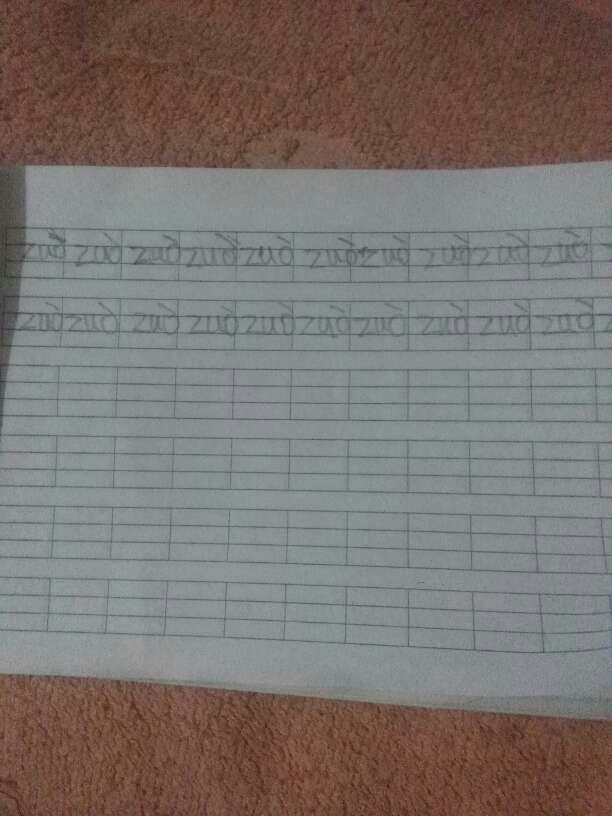 zuò zuò zuò zuò zuò zuò zuò zuò zuò zuò
zuò zuò zuò zuò zuò zuò zuò zuò zuò zuò